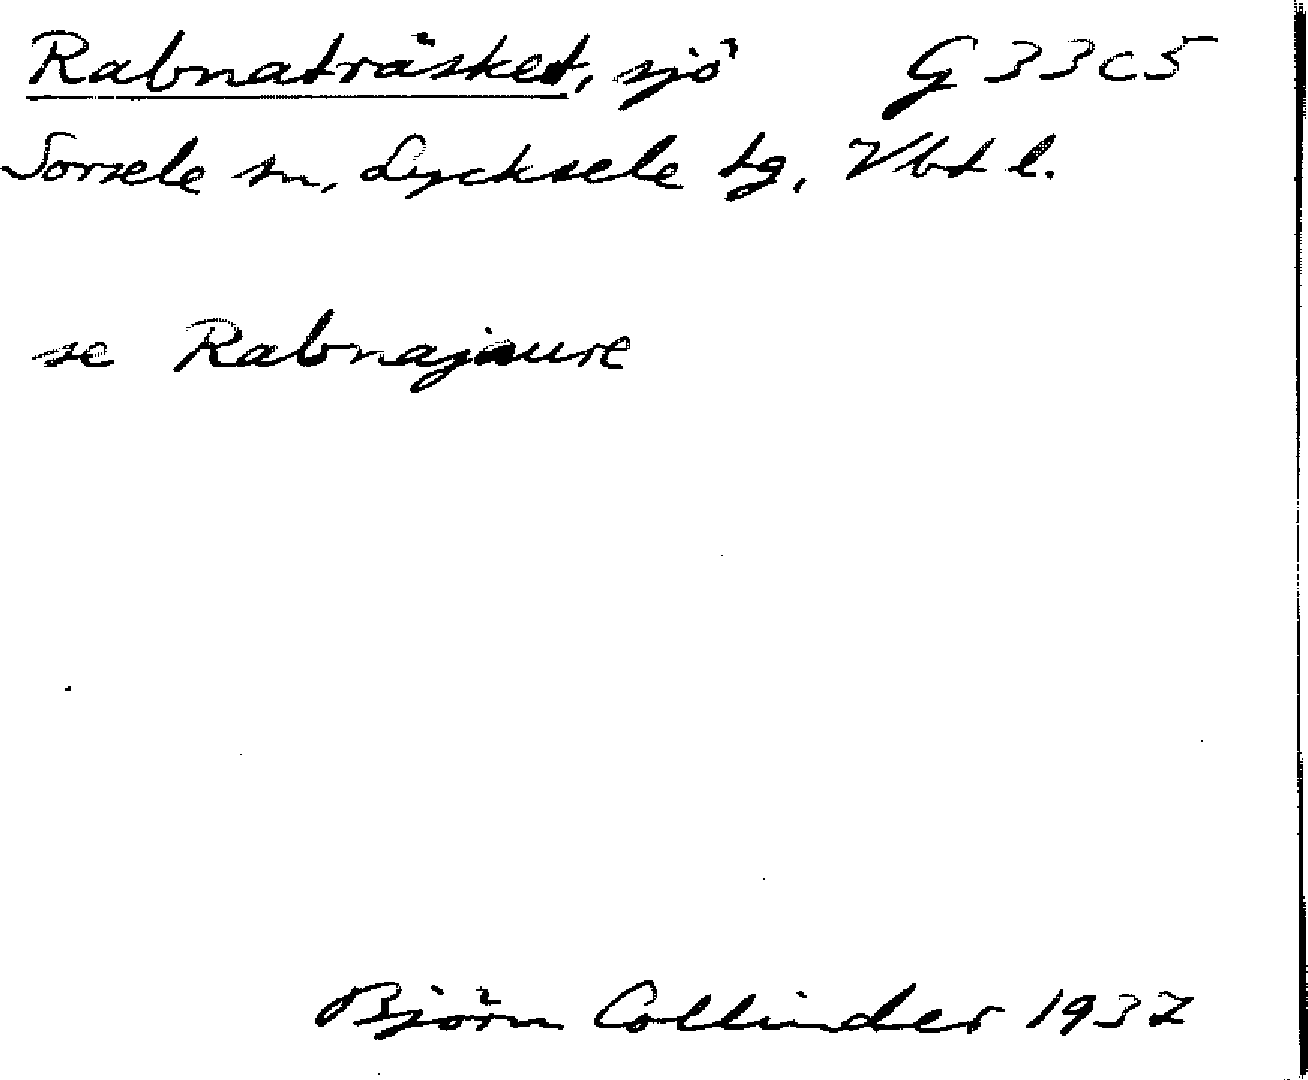 Rabnaträsket, sjö G 33 c 5
Sorsele sn, Lycksele tg, Vbt l.
se Rabnajaure
Björn Collinder 1937